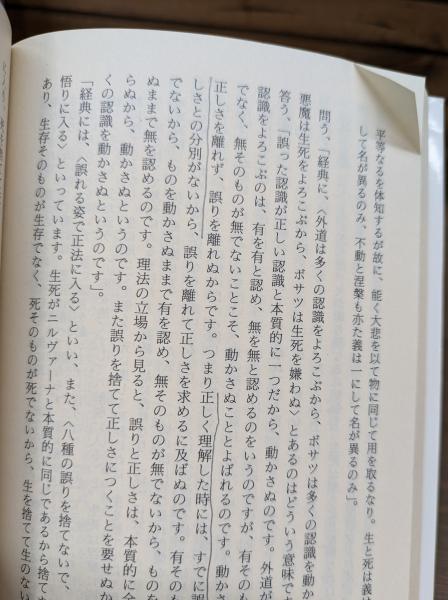 平等なるを体知するが故に、能く大悲を以て物に同じて用を取るなり。生と死は義は
して名が異るのみ、不動と涅槃も亦た義は一にして名が異るのみ」。
問う、「経典に、〈外道は多くの認識をよろこぶから、ボサツは多くの認識を動か
悪魔は生死をよろこぶから、ボサツは生死を嫌わぬ〉とあるのはどういう意味で
答う、「誤った認識が正しい認識と本質的に一つだから、動かさぬのです。外道が
認識をよろこぶのは、有を有と認め、無を無と認めるのをいうのですが、有そのも
でなく、無そのものが無でないことこそ、動かさぬこととよばれるのです。動かさ
正しさを離れず、誤りを離れぬからです。つまり正しく理解した時には、すでに誤
しさとの分別がないから、誤りを離れて正しさを求めるに及ばぬのです。有そのも
でないから、ものを動かさぬままで有を認め、無そのものが無でないから、ものを
ぬままで無を認めるのです。理法の立場から見ると、誤りと正しさは、本質的に全
らぬから、動かさぬというのです。また誤りを捨てて正しさにつくことを要せぬか
くの認識を動かさぬというのです」。
「経典には、〈誤れる姿で正法に入る〉といい、また、〈八種の誤りを捨てないで、
悟りに入る〉といっています。生死がニルヴァーナと本質的に同じであるから捨て
あり、生存そのものが生存でなく、死そのものが死でないから、生を捨てて生のない